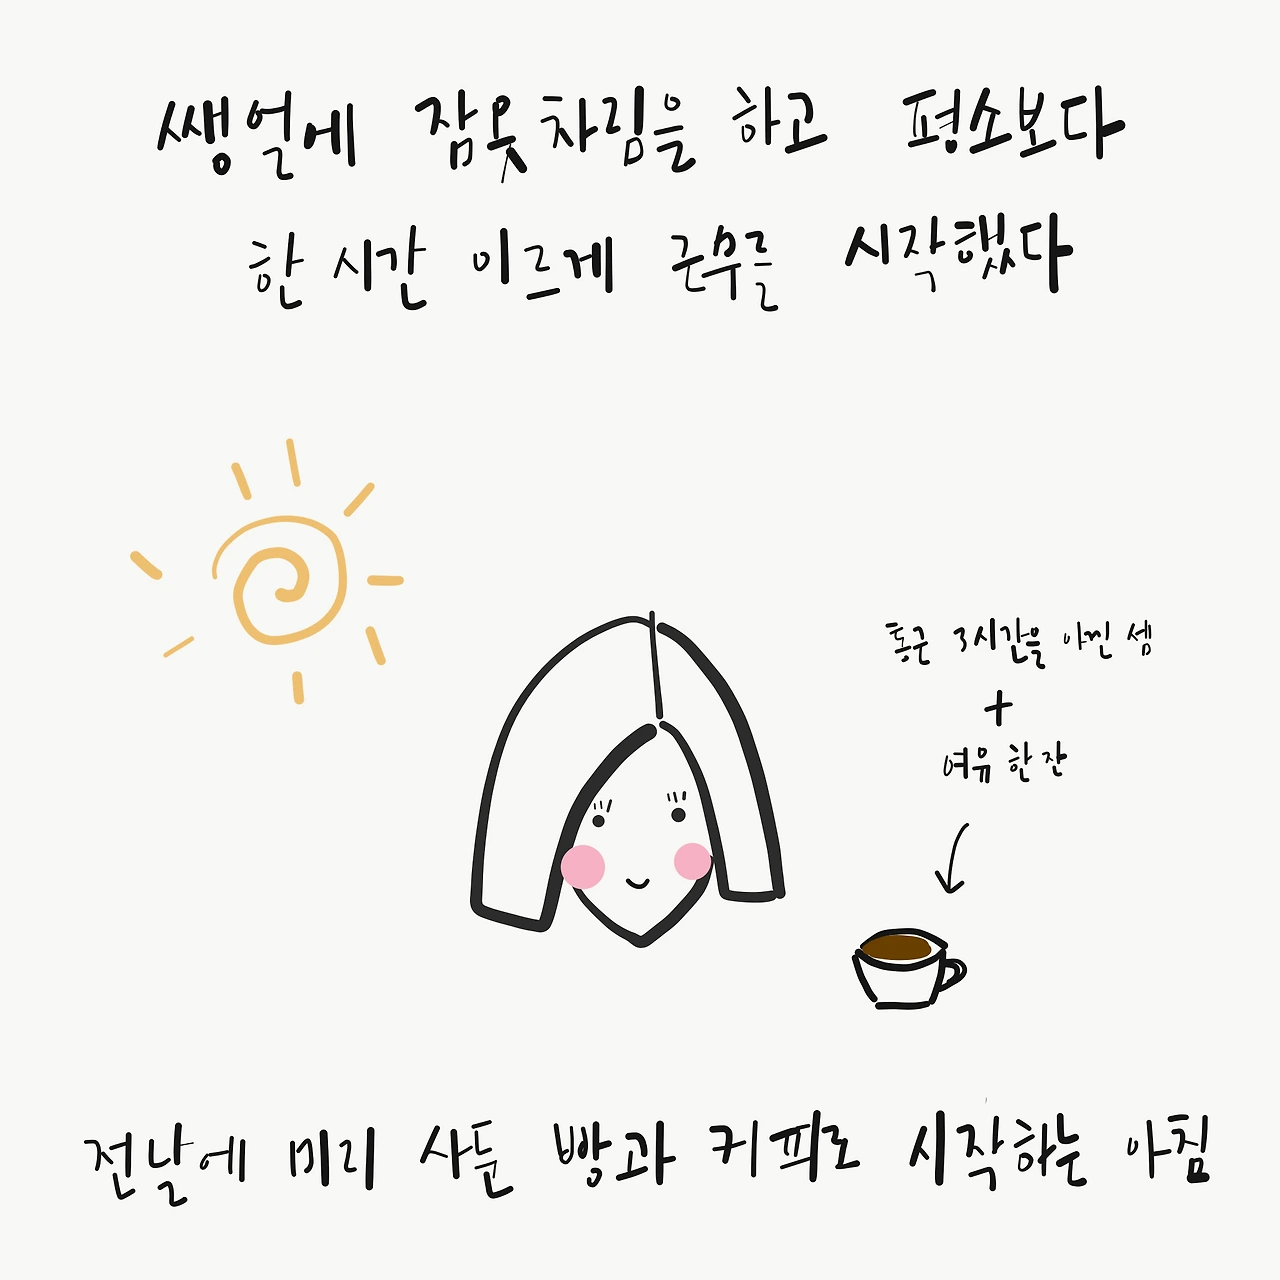 쌩얼에 잠옷차림을 하고 평소보다
한 시간 이르게 근무를 시작했다
통근 3시간을 아낀 셈
+
여유 한 잔
전날에 미리 사둔 빵과 커피로 시작하는 아침